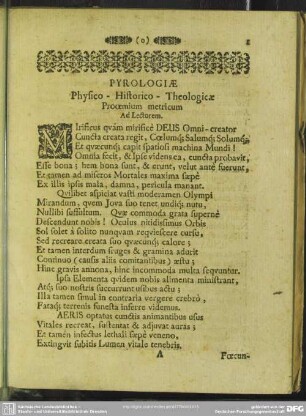 (o)
PYROLOGIÆ
Physico - Historico - Theologicæ
Prooemium metricum
Ad Lectorem.
MIrificus qvàm mirificè DEUS Omni-creator
Cuncta creata regit, Cœlumq; Salumq; Solumq;,
Et qvæcunq; capit spatiosi machina Mundi!
Omnia fecit, & Ipse videns ea, cuncta probavit,
Esse bona; hem bona sunt, & erunt, velut antè fuerunt,
Et tamen ad miseros Mortales maxima sæpè
Ex illis ipsis mala, damna, pericula manant.
Qvilibet aspiciat vasti moderamen Olympi
Mirandum, qvem Jova suo tenet undiq; nutu,
Nullibi subsultum. Qvæ commoda grata supernè
Descendunt nobis! Oculus nitidissimus Orbis
Sol solet à solito nunqvam reqviescere cursu,
Sed recreare creata suo qvæcunq; calore;
Et tamen interdum fruges & gramina adurit
Continuo (causis aliis comitantibus) æstu;
Hinc gravis annona, hinc incommoda multa seqvuntur.
Ipsa Elementa qvidem nobis alimenta ministrant,
Atq; suo nostris succurrunt usibus actu;
Illa tamen simul in contraria vergere crebrò,
Fataq; terrenis funesta inferre videmus.
AERIS optatus cunctis animantibus usus
Vitales recreat, sustentat & adjuvat auras;
Et tamen infectus lethali sæpè veneno,
Extingvit subitis Lumen vitale tenebris.
A Fœcun-